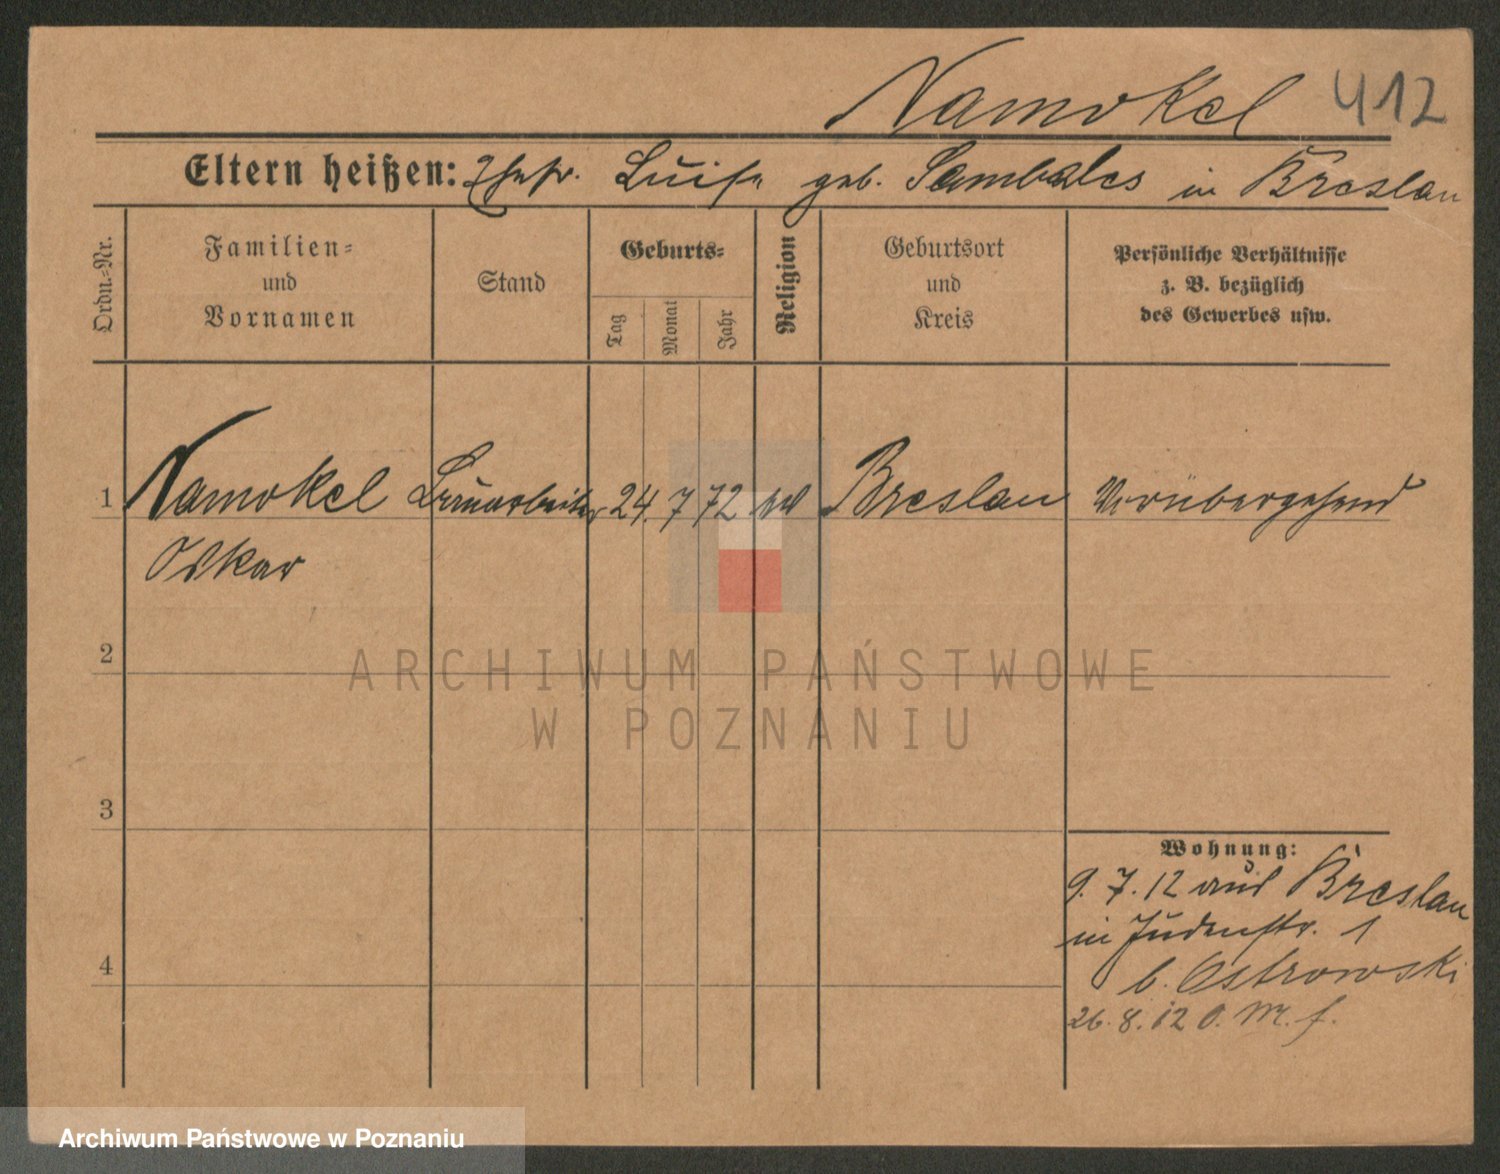 Namokel 412
Eltern heißen: Ehefr. Luise geb. Sambales in Breslau
Ordn.-Nr.
Familien-
und
Vornamen
Stand
Geburts-
Tag
Monat
Jahr
Religion
Geburtsort
und
Kreis
Persönliche Verhältnisse
z. B. bezüglich
des Gewerbes usw.
1 Namokel 24. 7 72 Breslau Vorübergehend
Oskar
2
3
4
Wohnung:
9. 7. 12 aus Breslau
in Judenstr. 1
b. Ostrowski
26. 8. 12 O. M. f.
ARCHIWUM PAŃSTWOWE
W POZNANIU
Archiwum Państwowe w Poznaniu